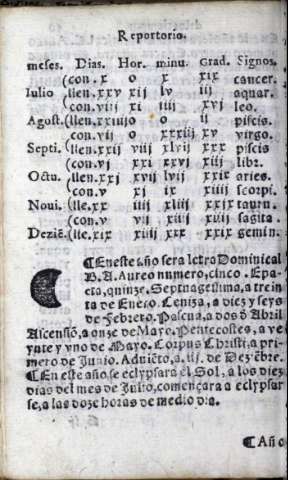 Reportorio.
meses. Dias. Hor. minu. Grad. Signos.
(con. x o x xix cancer.
Iulio (llen. xxv xij lv iij aquar.
(con. viij xi iiij xvj leo.
Agost. (llen. xxiiij o o ij piscis.
(con. vj o xxxiij xv virgo.
Septi. (llen. xxij viij xlvij xxx piscis
(con. vj xxi xxvj xiij libr.
Octu. (llen. xxj xvij lvij xxix aries.
(con. v xj ix xiiij scorpi.
Noui. (lle. xx iij xliij xxix taurn.
(con. v vij xiiij xiij sagita.
Deziẽ. (lle. xix xiij xxx xix gemin.
¶En este año sera letro Dominical
B. A. Aureo numero, cinco. Epa-
cta, quinze. Septuagessima, a trein
ta de Enero. Ceniza, a diez y seys
de Febrero. Pascua, a dos ď Abril
Ascensiõ, a onze de Mayo. Pentecostes, a ve
ynte y vno de Mayo. Corpus Christi, a pri-
mero de Junio. Aduiẽto, a. iij. de Dezẽbre.
¶En este año, se eclypsara el Sol, a los diez
dias del mes de Julio, començara a eclypsar
se, a las doze horas de medio dia.
¶Año